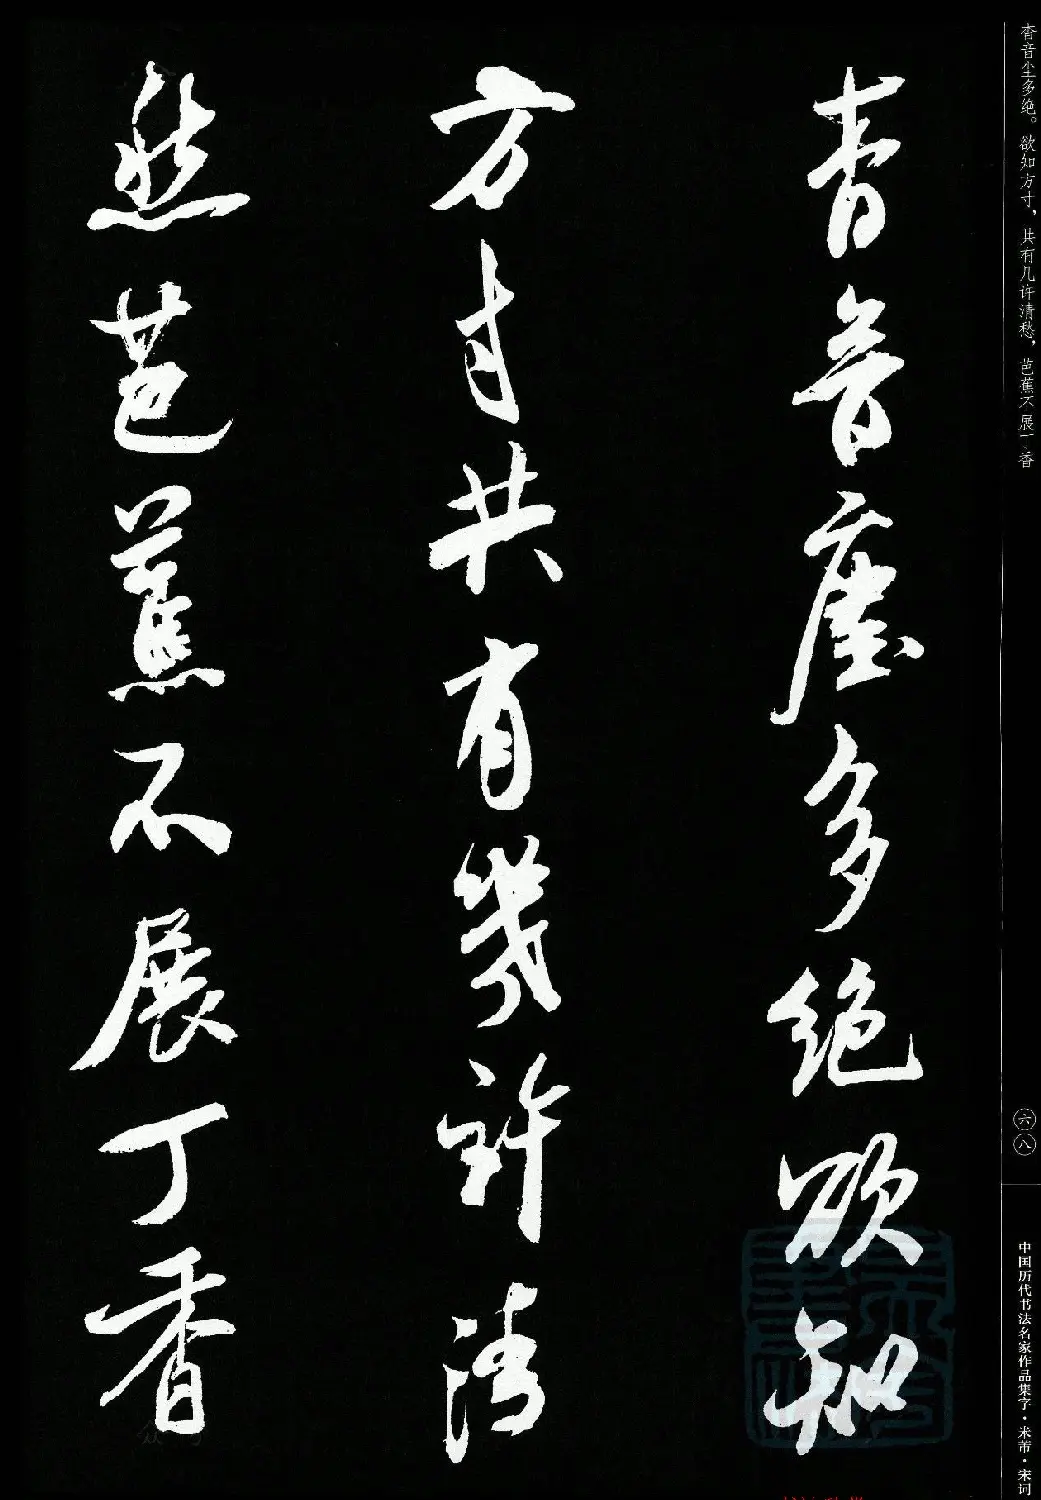 杳音尘多绝。欲知方寸，共有几许清愁，芭蕉不展丁香
六八
中国历代书法名家作品集字·米芾·宋词
杳音塵多絕欲知
方寸共有幾許清
愁芭蕉不展丁香